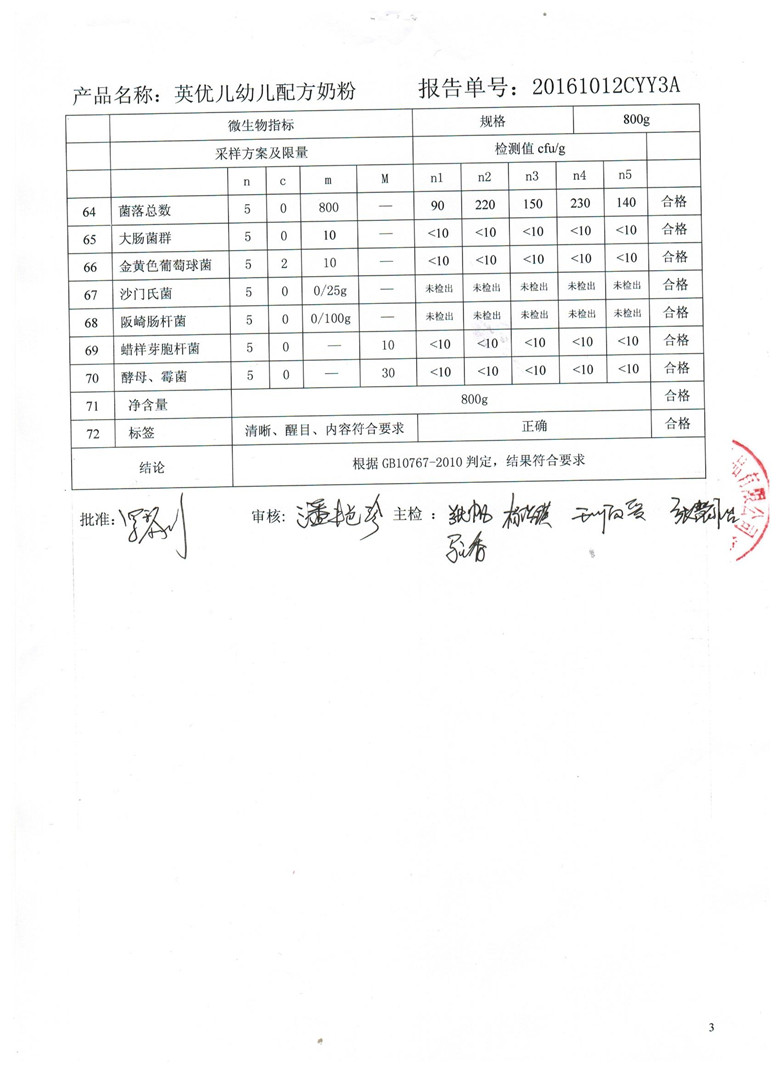 产品名称：英优儿幼儿配方奶粉 报告单号：20161012CYY3A
微生物指标 规格 800g
采样方案及限量 检测值 cfu/g
n c m M n1 n2 n3 n4 n5
64 菌落总数 5 0 800 — 90 220 150 230 140 合格
65 大肠菌群 5 0 10 — <10 <10 <10 <10 <10 合格
66 金黄色葡萄球菌 5 2 10 — <10 <10 <10 <10 <10 合格
67 沙门氏菌 5 0 0/25g — 未检出 未检出 未检出 未检出 未检出 合格
68 阪崎肠杆菌 5 0 0/100g — 未检出 未检出 未检出 未检出 未检出 合格
69 蜡样芽胞杆菌 5 0 — 10 <10 <10 <10 <10 <10 合格
70 酵母、霉菌 5 0 — 30 <10 <10 <10 <10 <10 合格
71 净含量 800g 合格
72 标签 清晰、醒目、内容符合要求 正确 合格
结论 根据 GB10767-2010 判定，结果符合要求
批准： 审核： 主检：
品有限公司
3